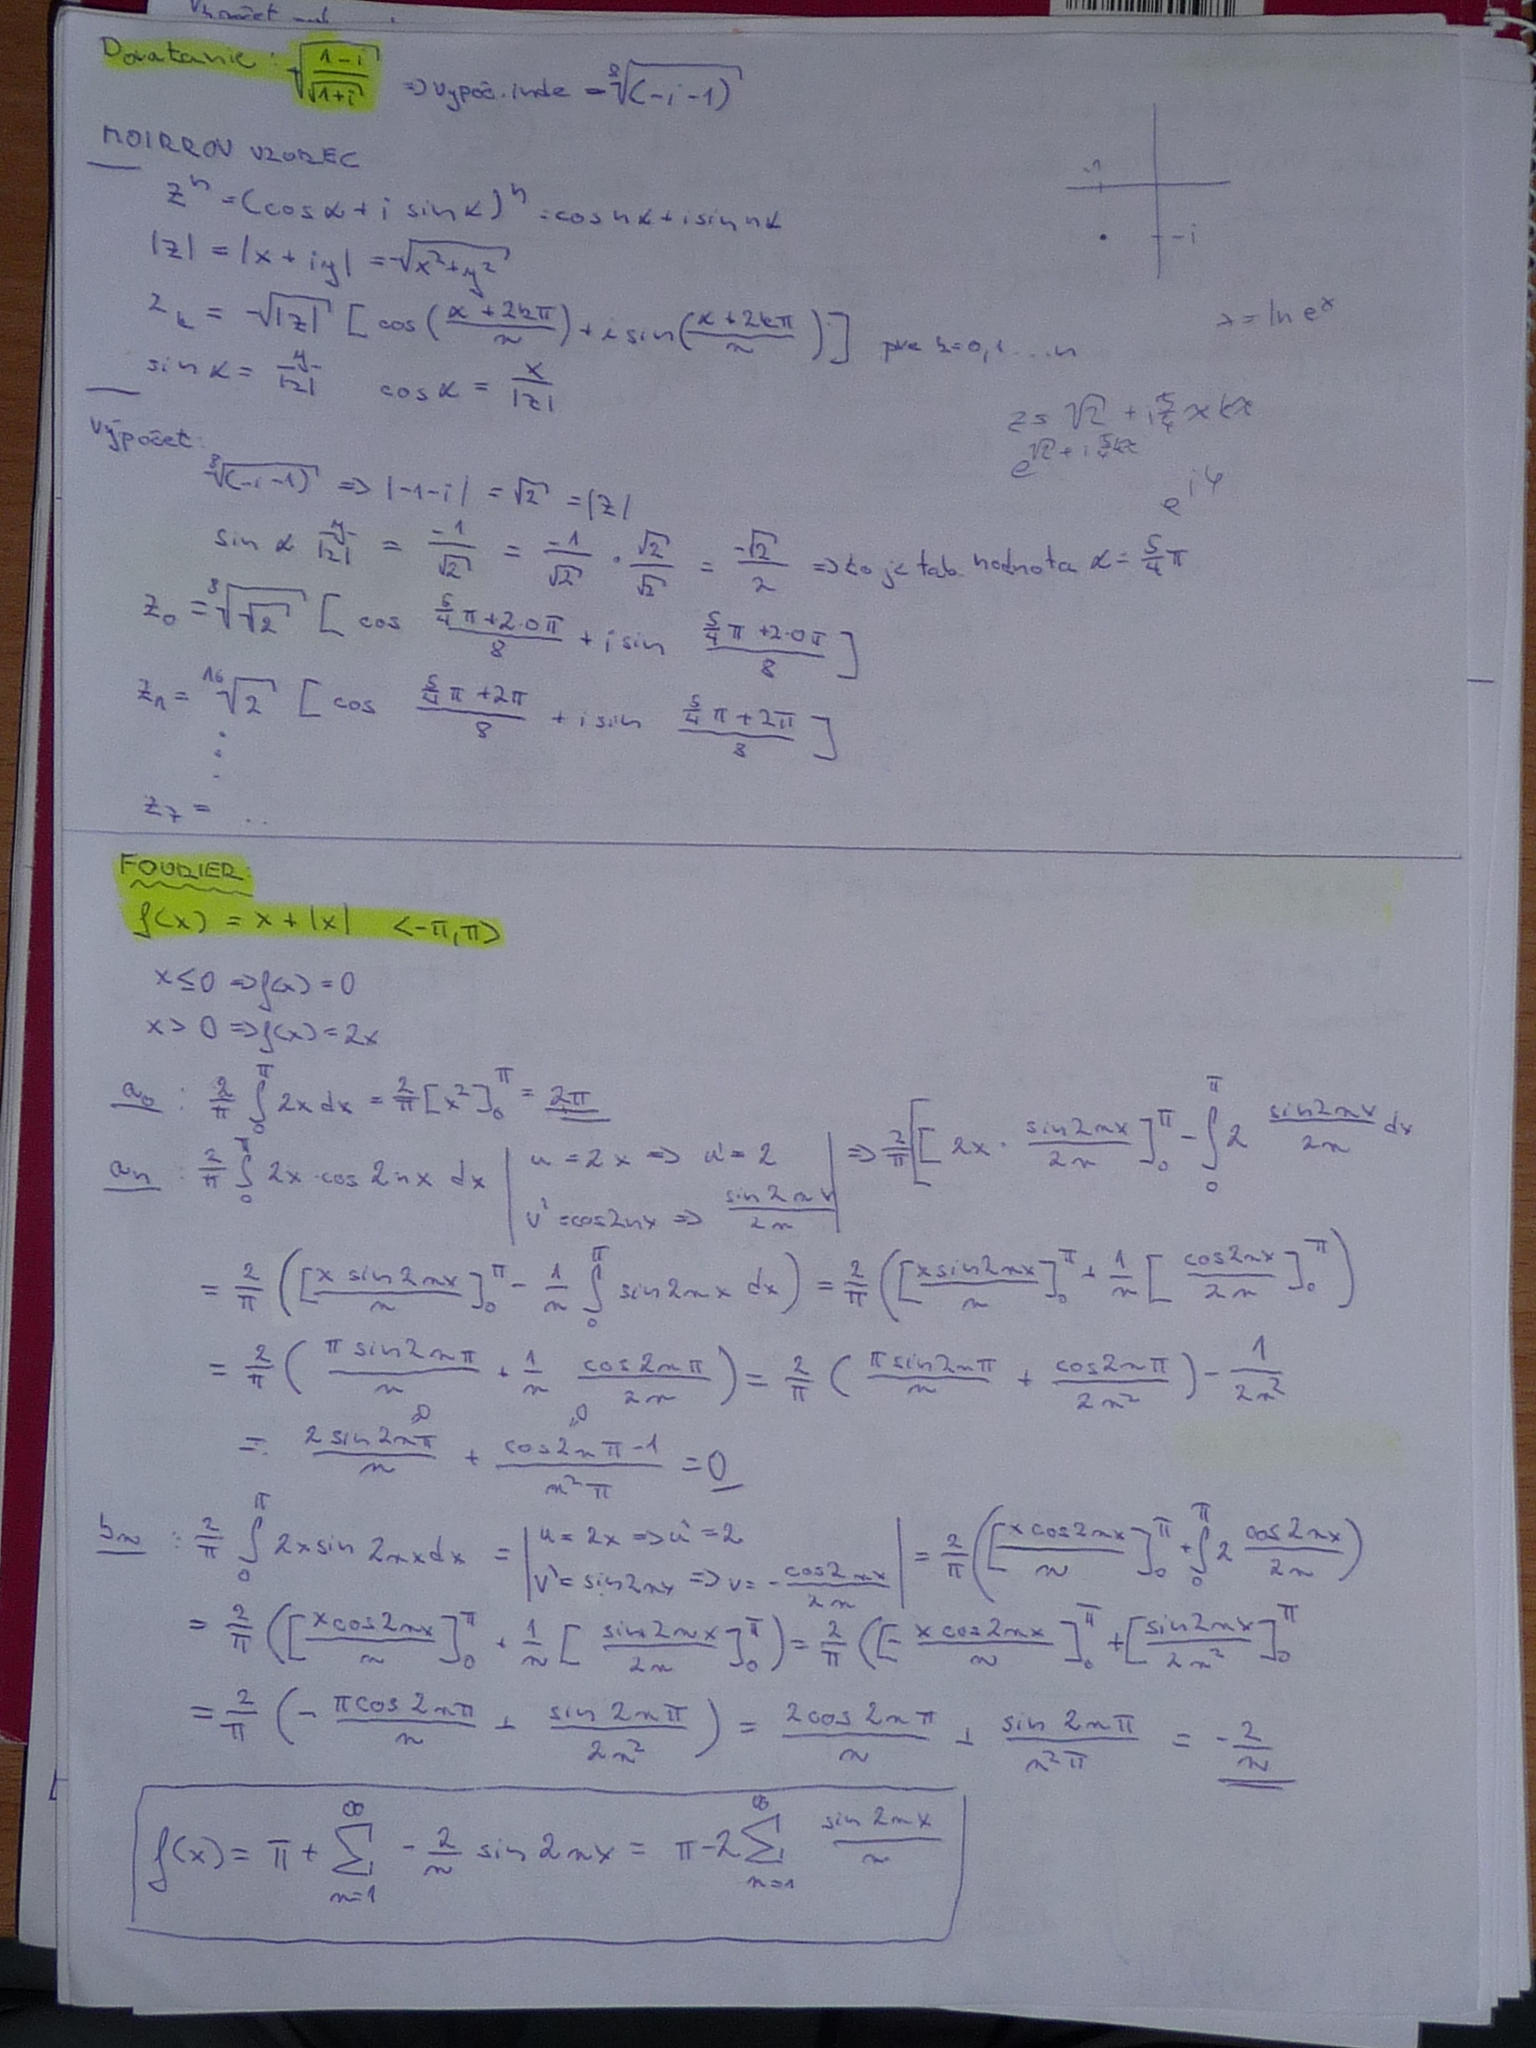 Doratanie: √((1-i)/√(1+i)) => vypoč. inde = ⁸√(-i-1)
MOIRROV VZOREC
zⁿ = (cos α + i sin α)ⁿ = cos nα + i sin nα
|z| = |x + iy| = √(x²+y²)
z_k = √|z| [cos((α+2kπ)/n) + i sin((α+2kπ)/n)] pre k=0,1...n
sin α = y/|z| cos α = x/|z|
-1
-i
x = ln eˣ
e^(iφ)
Výpočet:
⁸√(-i-1) => |-1-i| = √2 = |z|
sin α y/|z| = -1/√2 = -1/√2 · √2/√2 = -√2/2 => to je tab. hodnota α = 5/4 π
z₀ = ⁸√(√2) [cos (5/4 π+2·0π)/8 + i sin (5/4 π+2·0π)/8]
z₁ = ¹⁶√2 [cos (5/4 π+2π)/8 + i sin (5/4 π+2π)/8]
⋮
z₇ = ..
FOURIER:
f(x) = x+|x| <-π,π>
x≤0 => f(x) = 0
x>0 => f(x) = 2x
a₀ : 2/π ∫₀^π 2x dx = 2/π [x²]₀^π = 2π
aₙ : 2/π ∫₀^π 2x·cos 2nx dx | u = 2x => u' = 2 v' = cos2nx => sin2nx/2n | => 2/π [[2x · sin2nx/2n]₀^π - ∫₀^π 2 sin2nx/2n dx
= 2/π ([x sin2nx/n]₀^π - 1/n ∫₀^π sin2nx dx) = 2/π ([x sin2nx/n]₀^π + 1/n [cos2nx/2n]₀^π)
= 2/π (π sin2nπ/n + 1/n cos2nπ/2n) = 2/π (π sin2nπ/n + cos2nπ/2n²) - 1/2n²
= 2 sin2nπ/n + (cos2nπ-1)/n²π = 0
bₙ : 2/π ∫₀^π 2x sin 2nx dx = | u = 2x => u' = 2 v' = sin2nx => v = - cos2nx/2n | = 2/π ([x cos2nx/n]₀^π + ∫₀^π 2 cos2nx/2n)
= 2/π ([x cos2nx/n]₀^π + 1/n [sin2nx/2n]₀^π) = 2/π ([- x cos2nx/n]₀^π + [sin2nx/2n²]₀^π
= 2/π (- π cos 2nπ/n + sin 2nπ/2n²) = 2cos 2nπ/n + sin 2nπ/n²π = - 2/n
f(x) = π + ∑_{n=1}^∞ - 2/n sin 2nx = π - 2 ∑_{n=1}^∞ sin 2nx/n